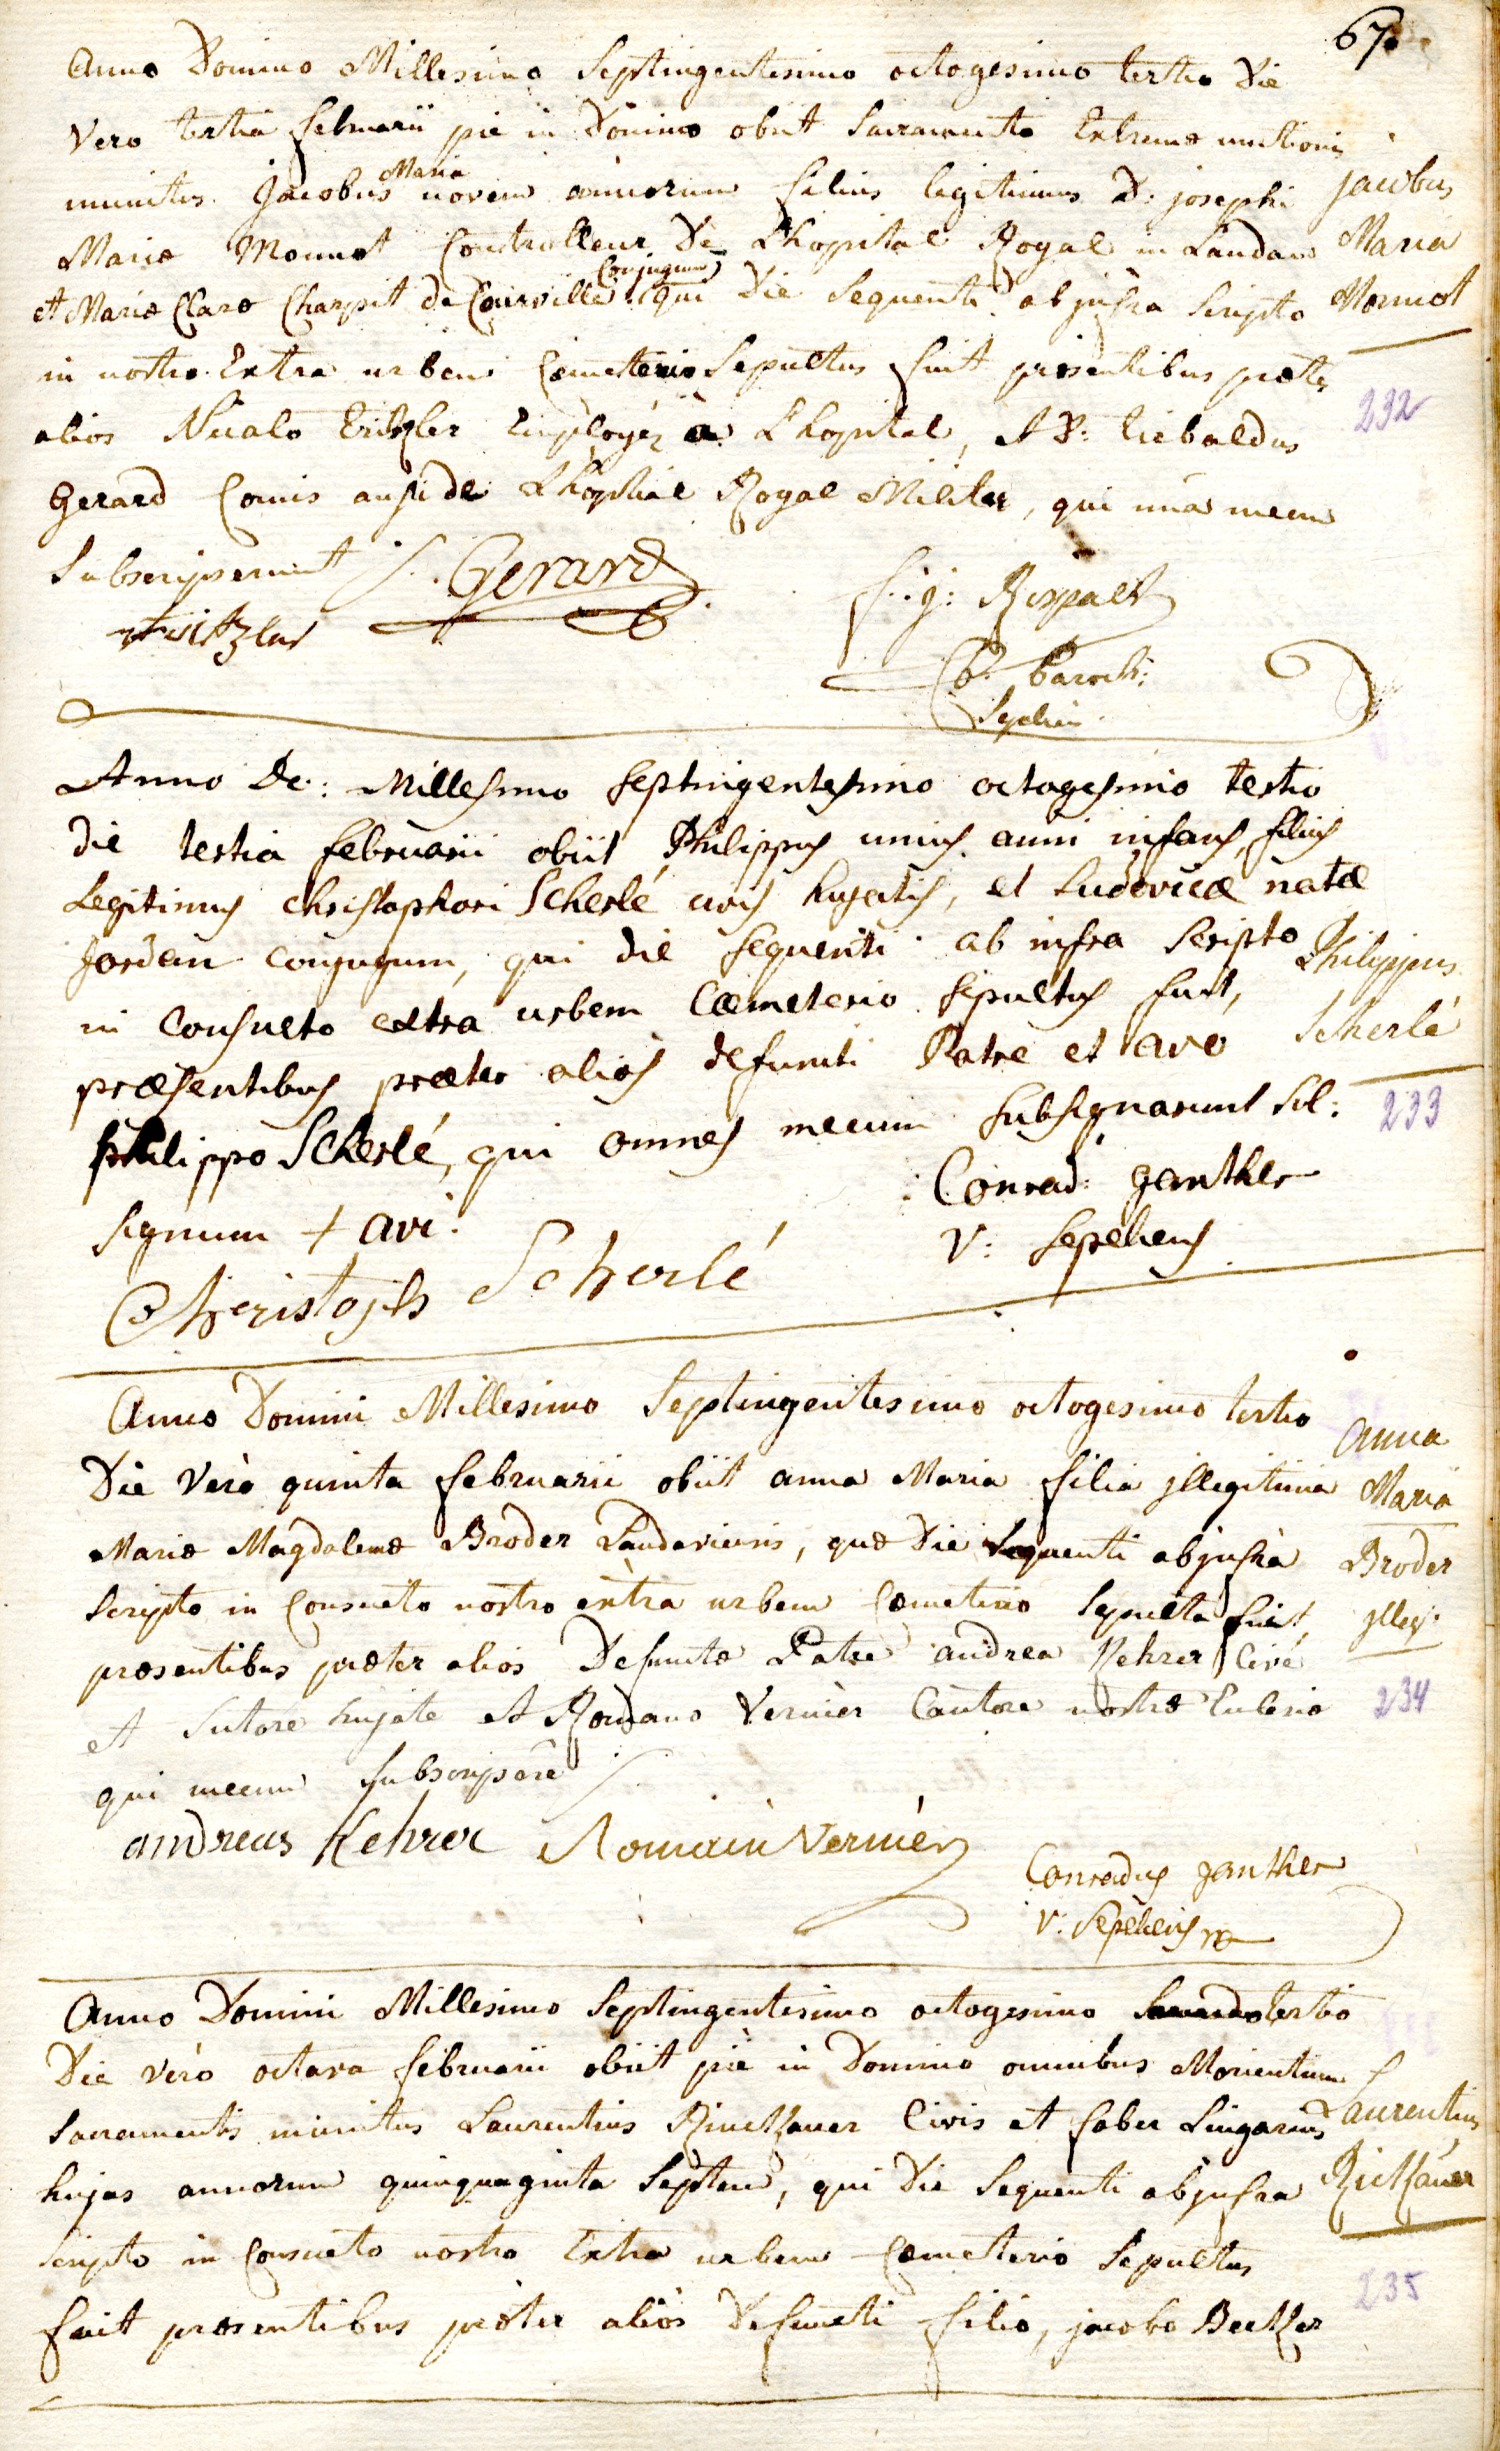 67.
Anno Domino Millesimo Septingentesimo octogesimo tertio Die
Vero tertia februarii pie in Domino obiit Sacramento Extremæ unctionis
munitus Jacobus Maria novem annorum filius legitimus D: josephi
Mariæ Monnot Controlleur De L'hopital Royal in Landau
et Mariæ Claræ Charpit de Courville Conjugum, qui Die Sequenti ab jnfra Scripto
in nostro Extra urbem Cæmeterio Sepultus fuit præsentibus præter
alios Nicalo Employez à L'hopital, et D: Tiebaldus
Gerard Comis aussi de L'hopital Royal Militer, qui una mecum
Subscripserunt
jacobus
Maria
Monnot
232
Gerard
Parochi:
Anno Do: Millesimo Septingentesimo octogesimo tertio
die tertia februarii obiit Philippus unius anni infans, filius
Legitimus christophori Scherlé civis hujatis, et Ludovicæ natæ
Jordan conjugum, qui die sequenti ab infra scripto
in Consueto extra urbem Cæmeterio sepultus fuit,
præsentibus præter alios defuncti Patre et avo
Philippo Scherlé, qui omnes mecum subsignarunt
Philippus
Scherlé
233
Signum + avi.
Christoph Scherlé
Conrad: Ganther
V: Sepeliens
Anno Domini Millesimo Septingentesimo octogesimo tertio
Die Verò quinta februarii obiit anna Maria filia jllegitima
Mariæ Magdalenæ Broder Landaviensis, quæ Die Sequenti ab jnfra
Scripto in Consueto nostro extra urbem Cæmeterio Sepulta fuit,
præsentibus præter alios Defunctæ Patre andrea Kehrer Cive
et Sutore hujate et Romano Vernier Cantore nostræ Eclesiæ
qui mecum subscripsere
anna
Maria
Broder
jlleg:
234
andreas Kehrer Romain Vernier
Conradus Ganther
V: Sepeliens
Anno Domini Millesimo Septingentesimo octogesimo tertio
Die verò octava februarii obiit piè in Domino omnibus Morientium
Sacramentis munitus Laurentius Civis et faber Lingarius
hujas annorum quinquaginta Septem, qui Die Sequenti ab jnfra
Scripto in Consueto nostro Extra urbem Cæmeterio Sepultus
fuit præsentibus præter alios Defuncti filio, jacobo Beck
Laurentius
235